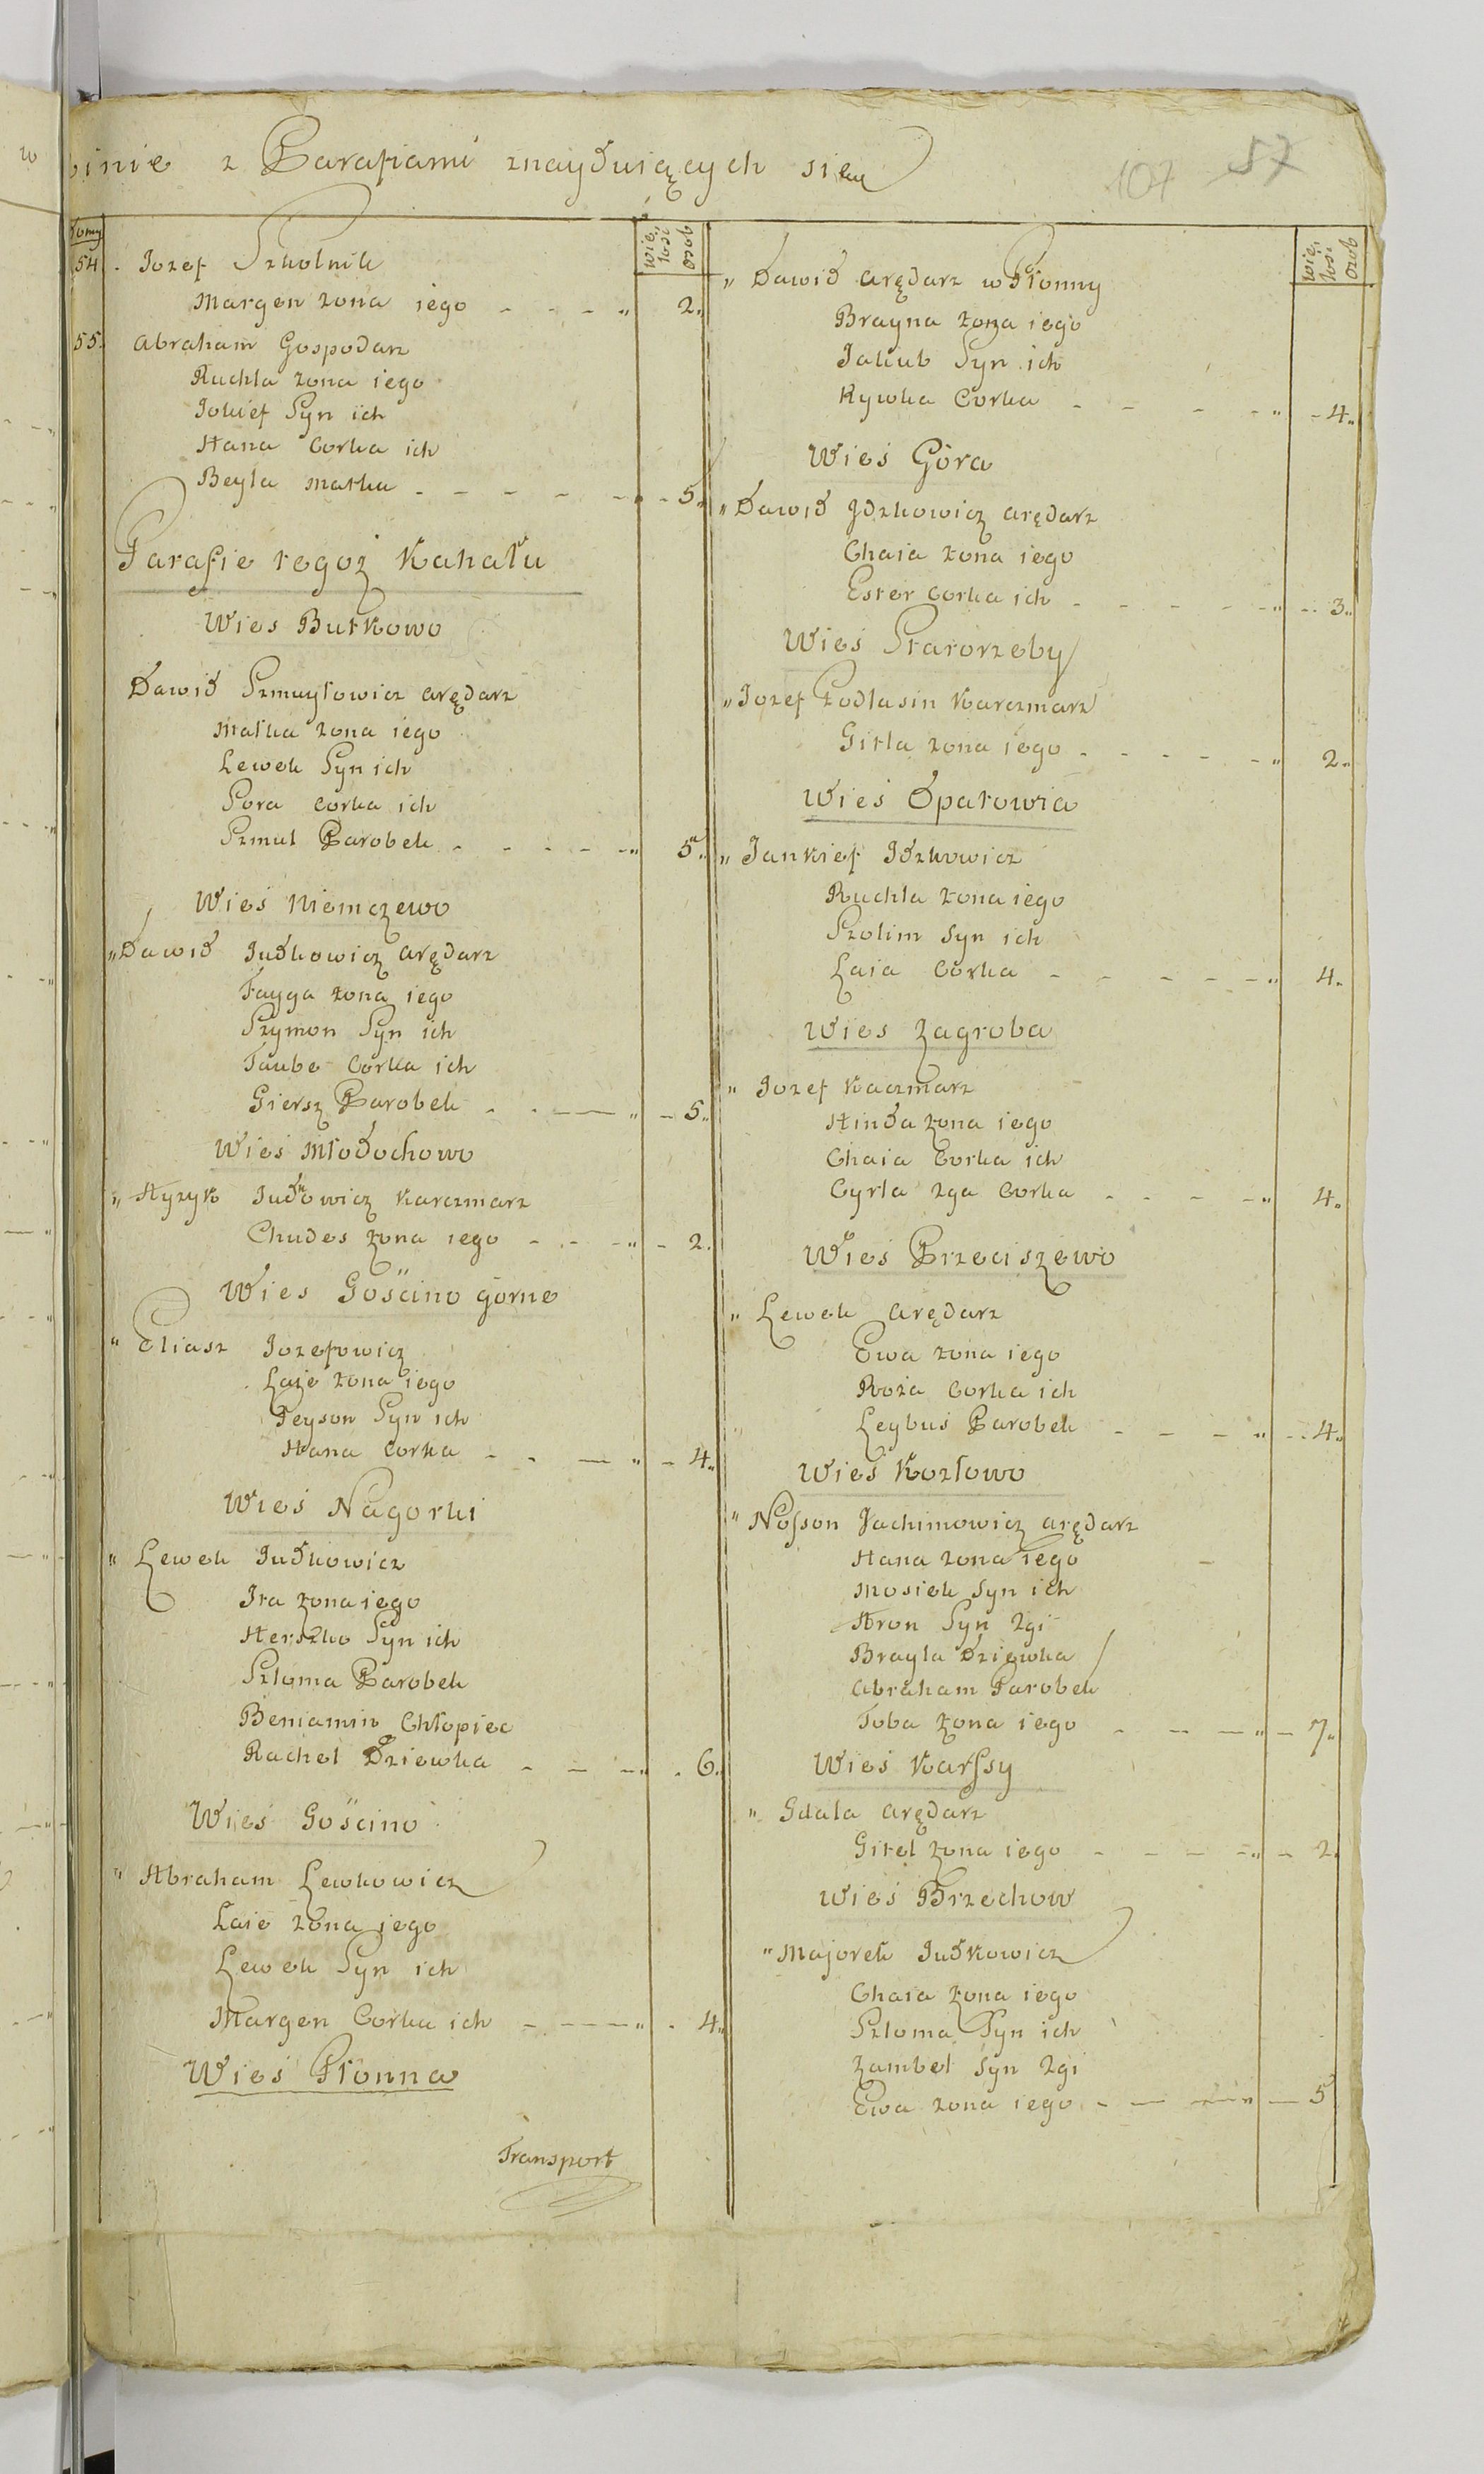 binie z Parafiami znayduiących się
107 57
Domy
wie, losc osob
54. Jozef Szkolnik
Margen zona iego - - - - „ 2.
55. Abraham Gospodarz
Ruchla zona iego
Jokief Syn ich
Hana Corka ich
Beyla Matka - - - - - 5.
Parafie tegoz Kahału
Wies Butkowo
Dawid Szmuyłowicz arędarz
Matka zona iego
Lewek Syn ich
Sora corka ich
Szmul Parobek - - - - - „ 5.
Wies Niemczewo
„ Dawid Judkowicz arędarz
Fayga zona iego
Szymon Syn ich
Taube Corka ich
Giersz Parobek - - — „ - 5.
Wies Młodochowo
„ Hyzyk Judkowicz Karczmarz
Chudes zona iego - - - „ - 2.
Wies Gościno górne
„ Eliasz Jozefowicz
Laie zona iego
Feyson Syn ich
Hana Corka - - — „ - 4.
Wies Nagorki
„ Lewek Judkowicz
Ita zona iego
Herszko Syn ich
Szloma Parobek
Beniamin Chłopiec
Rachel Dziewka - - - „ 6.
Wies Gościno
„ Abraham Lewkowicz
Laie zona iego
Lewek Syn ich
Margen Corka ich - - - - „ 4.
Wieś Płonna
Transport
wie, losc osob
„ Dawid arędarz w Płonny
Brayna zona iego
Jakub Syn ich
Rywka Corka - - - - „ - 4.
Wies Góra
„ Dawid Jdzkowicz arędarz
Chaia zona iego
Ester Corka ich - - - - - „ - 3.
Wies Starorzeby
„ Jozef Podlasin Karczmarz
Gitla zona iego - - - - - „ 2.
Wies Opatowia
„ Jankief Idzkowicz
Ruchla zona iego
Szolim Syn ich
Laia Corka - - - - - „ 4.
Wies Zagroba
„ Jozef Kaczmarz
Hinda zona iego
Chaia Corka ich
Cyrla 2ga Corka - - - - „ 4.
Wies Przeciszewo
„ Lewek arędarz
Ewa zona iego
Roza Corka ich
Leybus Parobek - - - „ - 4.
Wies Kozłowo
„ Nosson Jachimowicz arędarz
Hana zona iego
Mosiek Syn ich
Aron Syn 2gi
Brayla Dziewka
Abraham Parobek
Toba zona iego - - — „ - 7.
Wies Karssy
„ Gdala arędarz
Gitel zona iego - - - - „ - 2.
Wies Brzechow
„ Majorek Judkowicz
Chaia zona iego
Szloma Syn ich
Zambel Syn 2gi
Ewa zona iego - — - - „ — 5